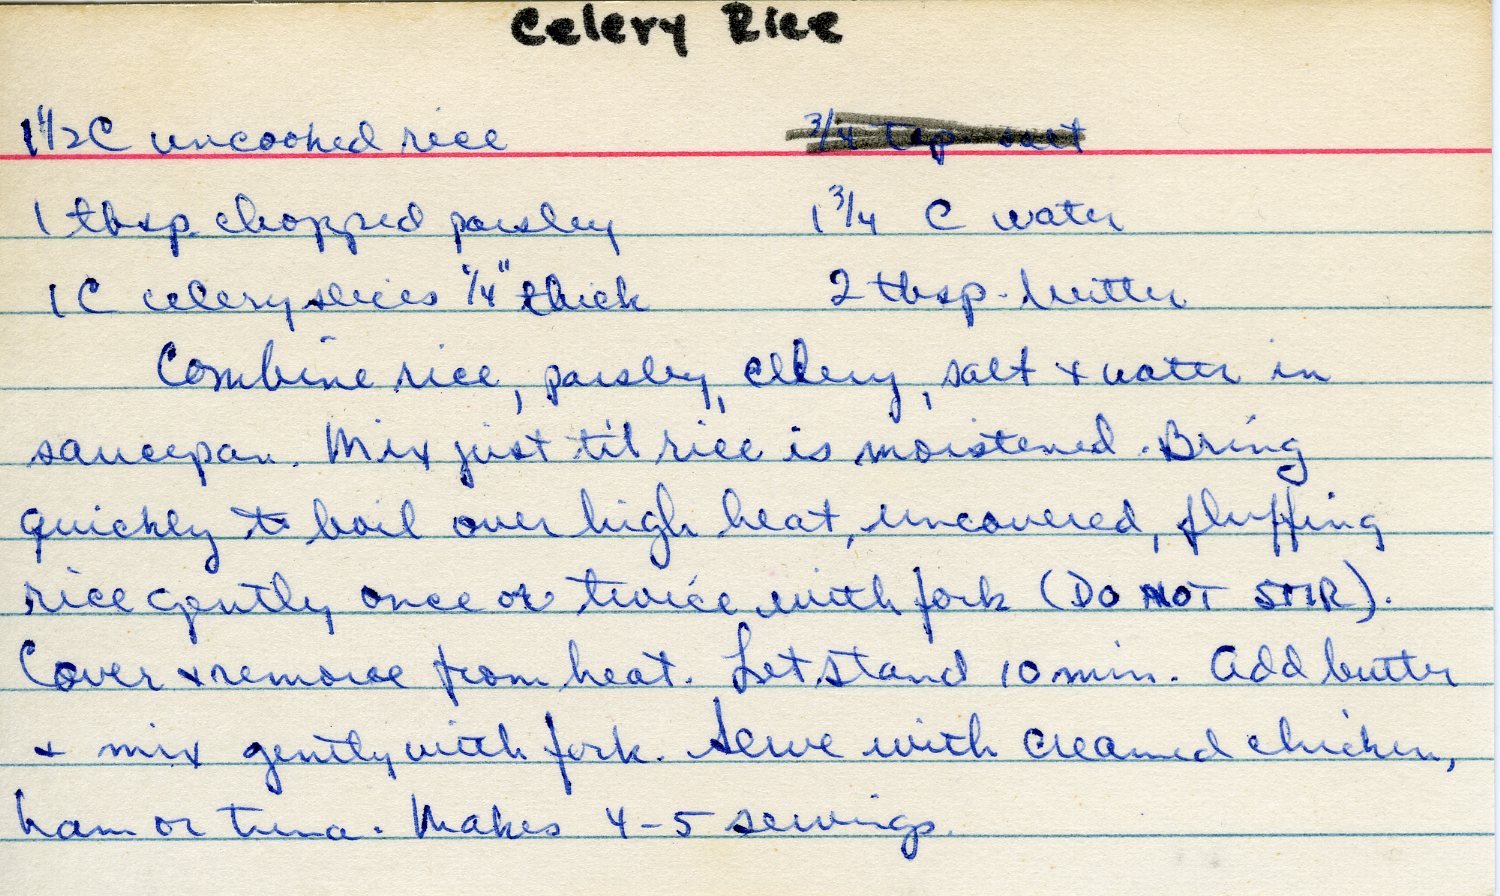 Celery Rice
1 1/2 C uncooked rice
3/4 tsp salt
1 tbsp. chopped parsley
1 3/4 C water
1 C celery slices 1/4" thick
2 tbsp. butter
Combine rice, parsley, celery, salt + water in
saucepan. Mix just til rice is moistened. Bring
quickly to boil over high heat, uncovered, fluffing
rice gently once or twice with fork (DO NOT STIR).
Cover + remove from heat. Let stand 10 min. Add butter
+ mix gently with fork. Serve with creamed chicken,
ham or tuna. Makes 4-5 servings.